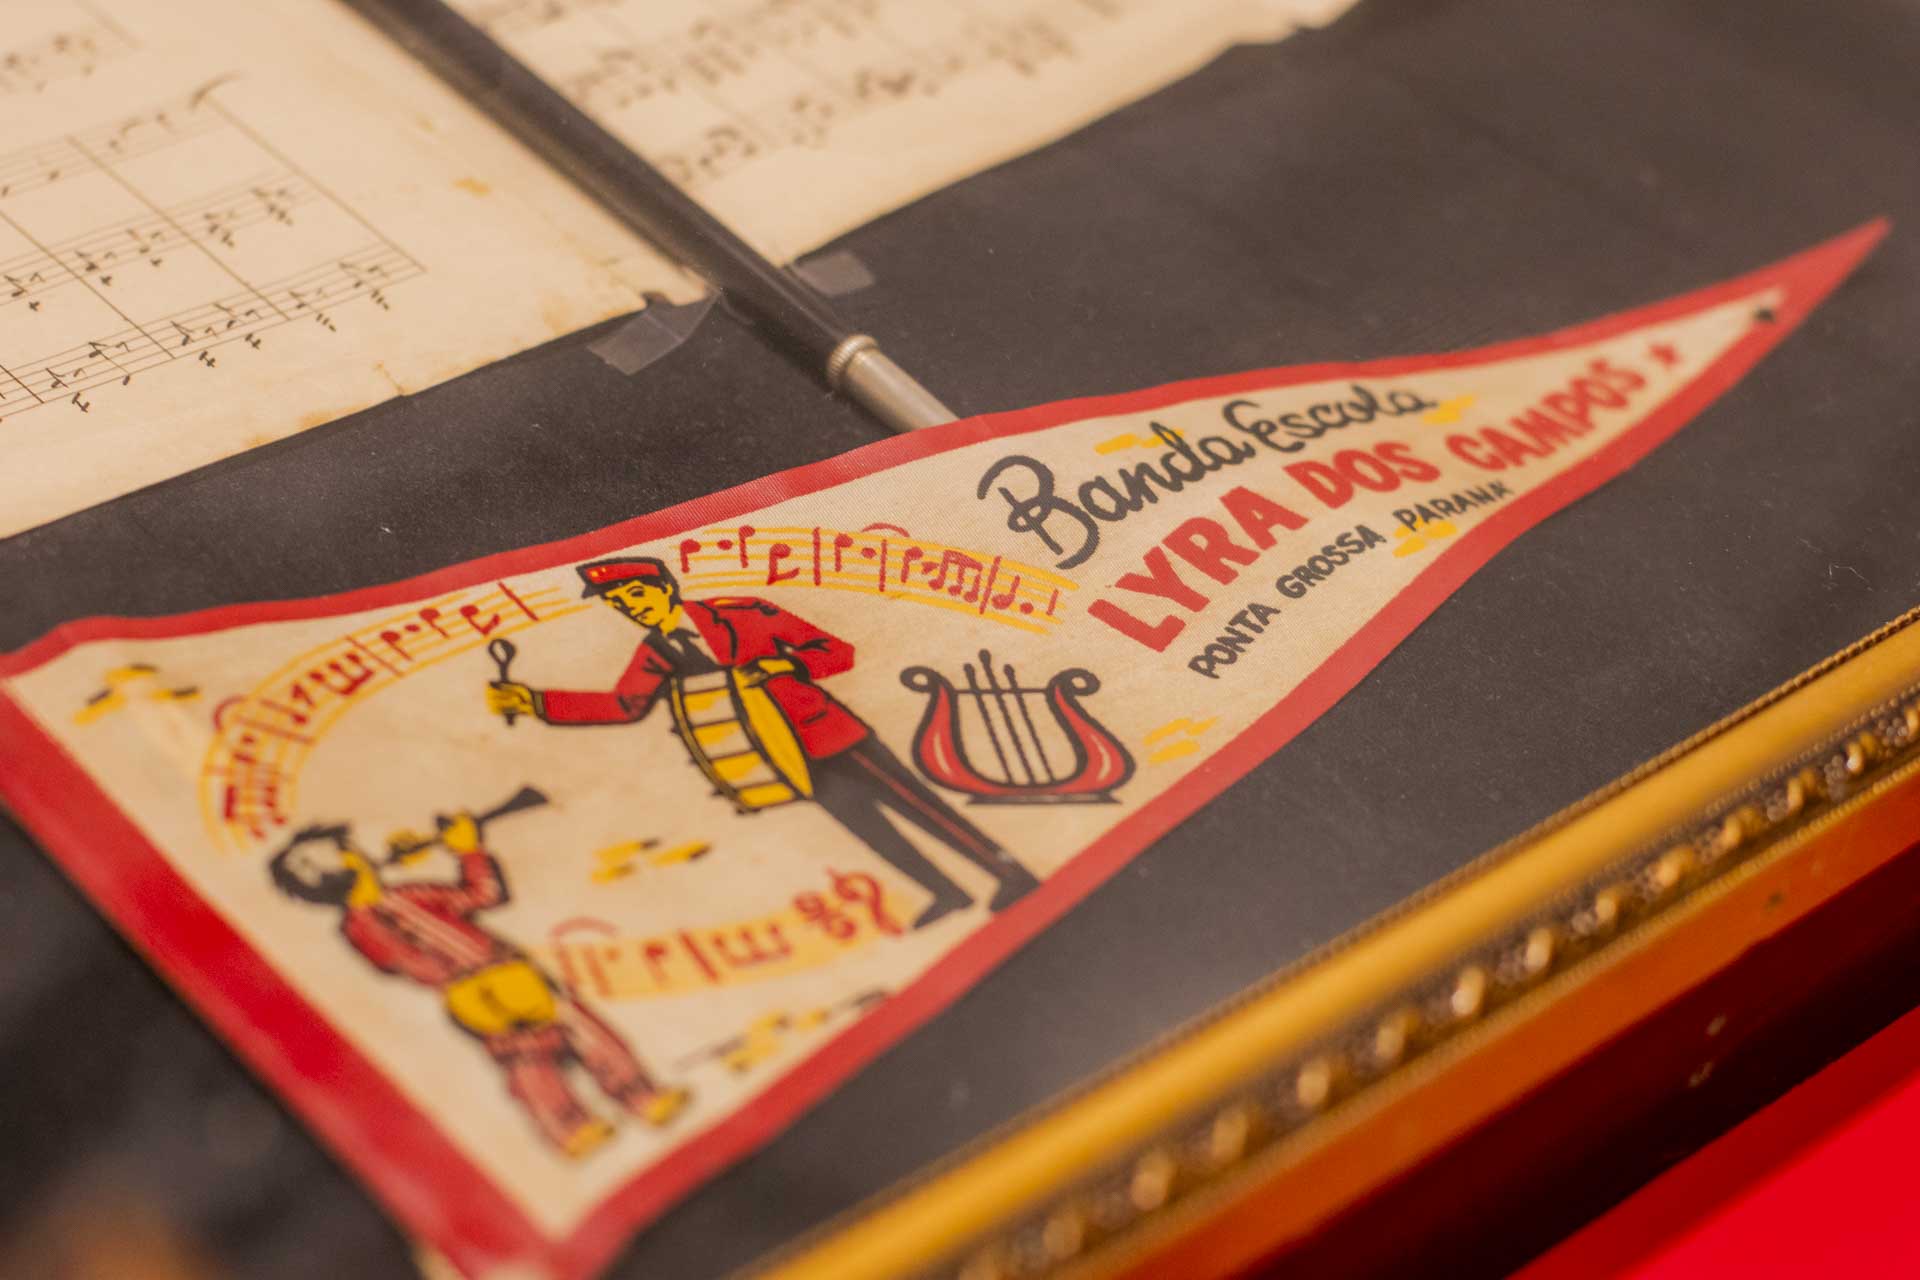 Banda Escola
LYRA DOS CAMPOS
PONTA GROSSA PARANÁ